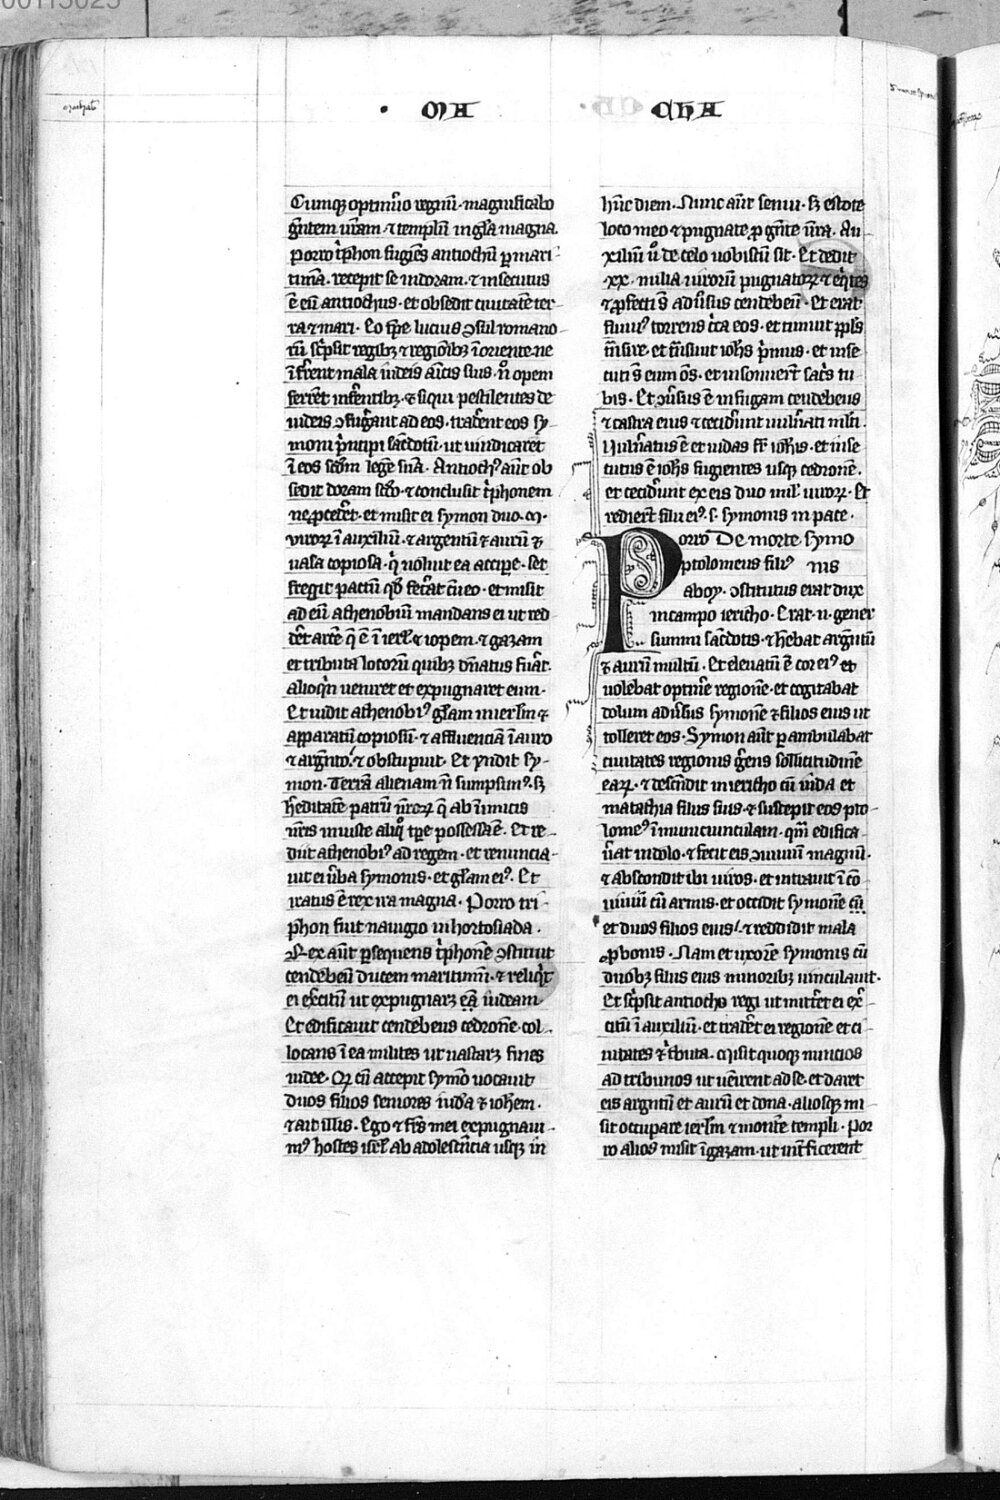 00113025
· MA CHA
Cumq; optinu͛io regnū· magnificabo
gn̄tem ur̄am· ⁊ templū in gl̄a magna.
Porro t͛phon fugiēs antiochū ꝑ mari-
timā. recepit se in doram. ⁊ insecutus
ē eū antiochus· et obsedit ciuitatē ter-
ra ⁊ mari· lucius ꝯsul romano-
ꝯfug͛ant ad eos· trad͛ent eos sy-
moni p͛ncipi sac͛dotū· ut uindicaret
ī eos scdm̄ legē suā. Antioch⁹ aūt ob
sedit doram sc̄do·⁊ conclusit t͛phonem
ne ꝓced͛et· et misit ei symon duo· m̄·
uiroꝝ ī auxiliū· ⁊ argentū ⁊ aurū ⁊
uasa copiosa· ⁊ noluit ea accipe· set
fregit pactū qd̄ fec͛at cū eo· et misit
ad eū athenobiū mandans ei ut red
et tributa locoꝝ quibꝫ dn̄atus fu͛at.
alioq͛n ueniret et expugnaret eum·
Et uidit athenobi⁹ gl̄am in ierl̄m ⁊
apparatū copiosū· ⁊ affluenciā ī auro
⁊ arg͛nto· ⁊ obstupuit· Et r̄ndit sy-
mon· Terrā alienam n̄ sumpsim⁹· sꝫ
h͛editatē patrū nr̄oꝝ q̄ ab īimicis
nr̄is iniuste aliq̊ tp̄e possessa ē. Et re-
diit athenobi⁹ ad regem· et renuncia-
uit ei u͛ba symonis· et gl̄am ei⁹. Et
iratus ē rex ira magna· Porro tri-
phon fuit nauigio in hortosiada.
Rex aūt ꝑsequens t͛phonē ꝯstituit
cendebeū ducem maritimū· ⁊ reliq͛t
ei ex͛citū ut expugnarꝫ eā iudeam·
Et edificauit cendebeus cedronē· col-
locans ī ea milites ut uastarꝫ fines
iudee· cū accepit symō uocauit
duos filios seniores iudā ⁊ ioh̄em·
⁊ ait illis· Ego ⁊ fr̄s mei expugnaui-
m⁹ hostes isrl̄ ab adolescn̄cia usqꝫ in
hūc diem· Nunc aūt senui· sꝫ estote
loco meo ⁊ pugnate ꝓ gn̄te nr̄a. Au-
xiliū ů de celo uobiscū sit· Et dedit
xx· milia uiroꝝ pugnatoꝝ ⁊ eq͛tes
⁊ ꝓfecti s̄ adu͛sus cendebeū· Et erat
fluui⁹ torrens c͛ca eos· et timuit ppl̄s
t͛nsire· et t͛nsiuit ioh̄s p͛mus· et inse
cuti s̄ eum oēs· et insonuer̄t sac͛s tu
bis· Et ꝯu͛sus ē in fugam cendebeus
⁊ castra eius ⁊ cecid͛unt uuln͛ati mlt̄i·
Vuln͛atus ē et iudas fr̄ ioh̄is· et inse
cutus ē ioh̄s fugientes usqꝫ cedronē·
et cecid͛unt ex eis duo mil̄ uiroꝝ· Et
redier̄t filii ei⁹· s· symonis in pace·
Porro De morte symo
ptolomeus fili⁹ nis
aboy· ꝯstitutus erat dux
in campo iericho· Erat n· gener
summi sac͛dotis· ⁊ h͛ebat arg͛ntū
⁊ aurū multū· Et eleuatū ē cor ei⁹ et
uolebat optin͛e regionē· et cogitabat
dolum adu͛sus symonē ⁊ filios eius ut
tolleret eos· Symon aūt ꝑambulabat
ciuitates regionis g͛ens sollicitudinē
eaꝝ· ⁊ descn̄dit in iericho cū iuda et
matathia filius suis· ⁊ suscepit eos pto-
lome⁹ ī munciunculam· qm̄ edifica-
u͛at in dolo· ⁊ fecit eis ꝯuiuiū magnū·
⁊ abscondit ibi uiros· et intrauit ī cō-
uiuiū cū armis· et occidit symonē cū
et duos filios eius· ⁊ reddidit mala
ꝓ bonis· Nam et uxorē symonis cū
duobꝫ filiis eius minoribꝫ uinculauit·
Et sc͛psit antiocho regi ut mitt͛et ei ex͛-
citū ī auxiliū· et trad͛et ei regionē et ci-
uitates ⁊ t͛buta. Misit quoqꝫ nuncios
ad tribunos ut uēirent ad se· et daret
eis argn̄tū et aurū et dona· aliosqꝫ mi-
sit occupare ierl̄m ⁊ monte templi· Por
ro alios misit ī gazam· ut int͛ficerent